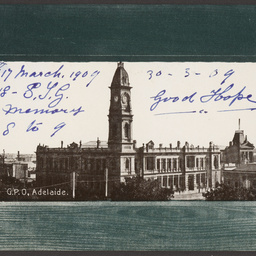 17 March. 1909
30 - 3 - 39
Good Hope
Memory
8 to 9
G.P.O, Adelaide.